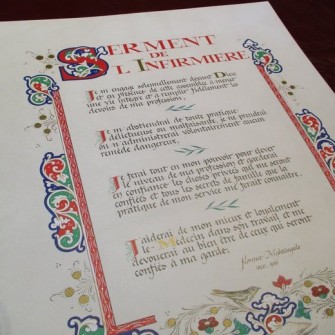 SERMENT
DE
L'INFIRMIÈRE
Je m'engage solennellement devant Dieu
et en présence de cette assemblée à mener
une vie intègre et à remplir fidèlement les
devoirs de ma profession.
Je m'abstiendrai de toute pratique
délictueuse ou malfaisante, je ne prendrai
ou n'administrerai volontairement aucun
remède dangereux.
Je ferai tout en mon pouvoir pour élever
le niveau de ma profession et garderai
en confiance les choses privées qui me seront
confiées et tous les secrets de famille que la
pratique de mon service me ferait connaître.
J'aiderai de mon mieux et loyalement
le Médecin dans son travail et me
dévouerai au bien être de ceux qui seront
confiés à ma garde.
Florence Nightingale